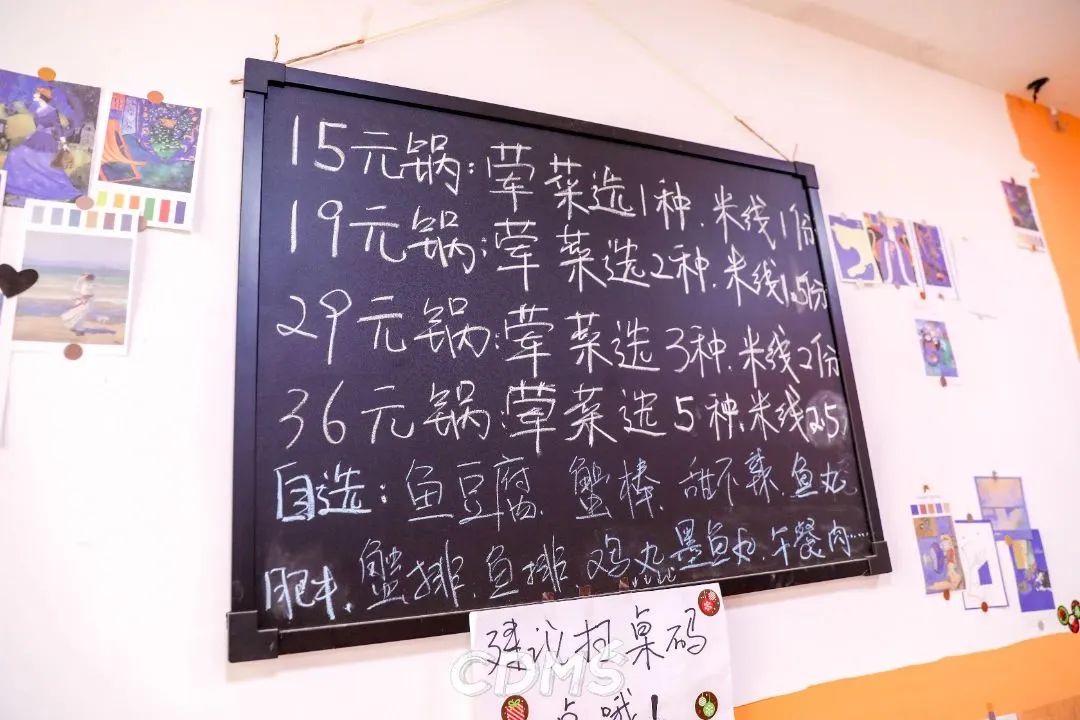 15元锅:荤菜选1种.米线1份
19元锅:荤菜选2种.米线1.5份
29元锅:荤菜选3种.米线2份
36元锅:荤菜选5种.米线2.5
自选:鱼豆腐.蟹棒.甜不辣.鱼丸
肥牛.蟹排.鱼排.鸡丸.墨鱼丸.午餐肉……
建议扫桌码
点哦!
CDMS